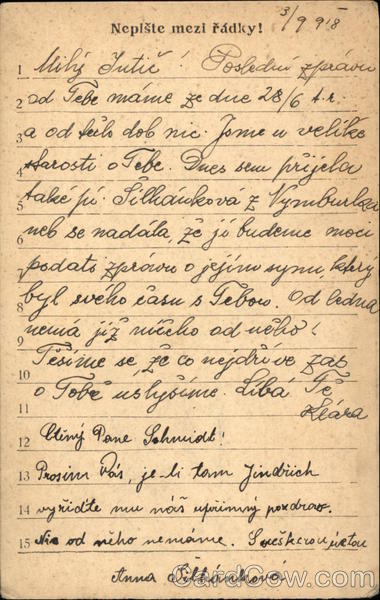 Nepište mezi řádky!
3/9 918
1 Milý Jutič! Poslední zprávu
2 od Tebe máme ze dne 28/6 t.r.
3 a od těch dob nic. Jsme u veliké
4 starosti o Tebe. Dnes sem přijela
5 také pí. Šilhánková z Nymburka
6 neb se nadála, že jí budeme moci
7 podati zprávu o jejím synu, který
8 byl svého času s Tebou. Od ledna
9 nemá již ničeho od něho!
10 Těšíme se, že co nejdříve zas
11 o Tobě uslyšíme. Líbá Tě
Klára
12 Ctěný Pane Schmidt!
13 Prosím Vás, je-li tam Jindřich
14 vyřiďte mu náš upřímný pozdrav.
15 Nic od něho nemáme. S veškerou úctou
Anna Šilhánková
CardCow.com